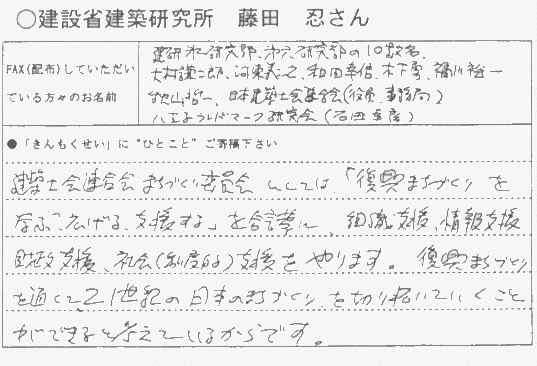 ○建設省建築研究所 藤田 忍さん
FAX(配布)していただい
ている方々のお名前
建研 第一研究部、第六研究部の10数名、
大村謙二郎、河東義之、和田幸信、木下勇、福川裕一
秋山哲一、日本建築士会連合会(役員、事務局)
八王子ランドマーク研究会(石田幸彦)
●「きんもくせい」に"ひとこと"ご寄稿下さい
建築士会連合会 まちづくり委員会としては「復興まちづくりを
学ぶ、広げる、支援する」を合言葉に、組織支援、情報支援
財政支援、社会(制度的)支援をやります。復興まちづくり
を通して、21世紀の日本のまちづくりを切り拓いていくこと
ができると考えているからです。